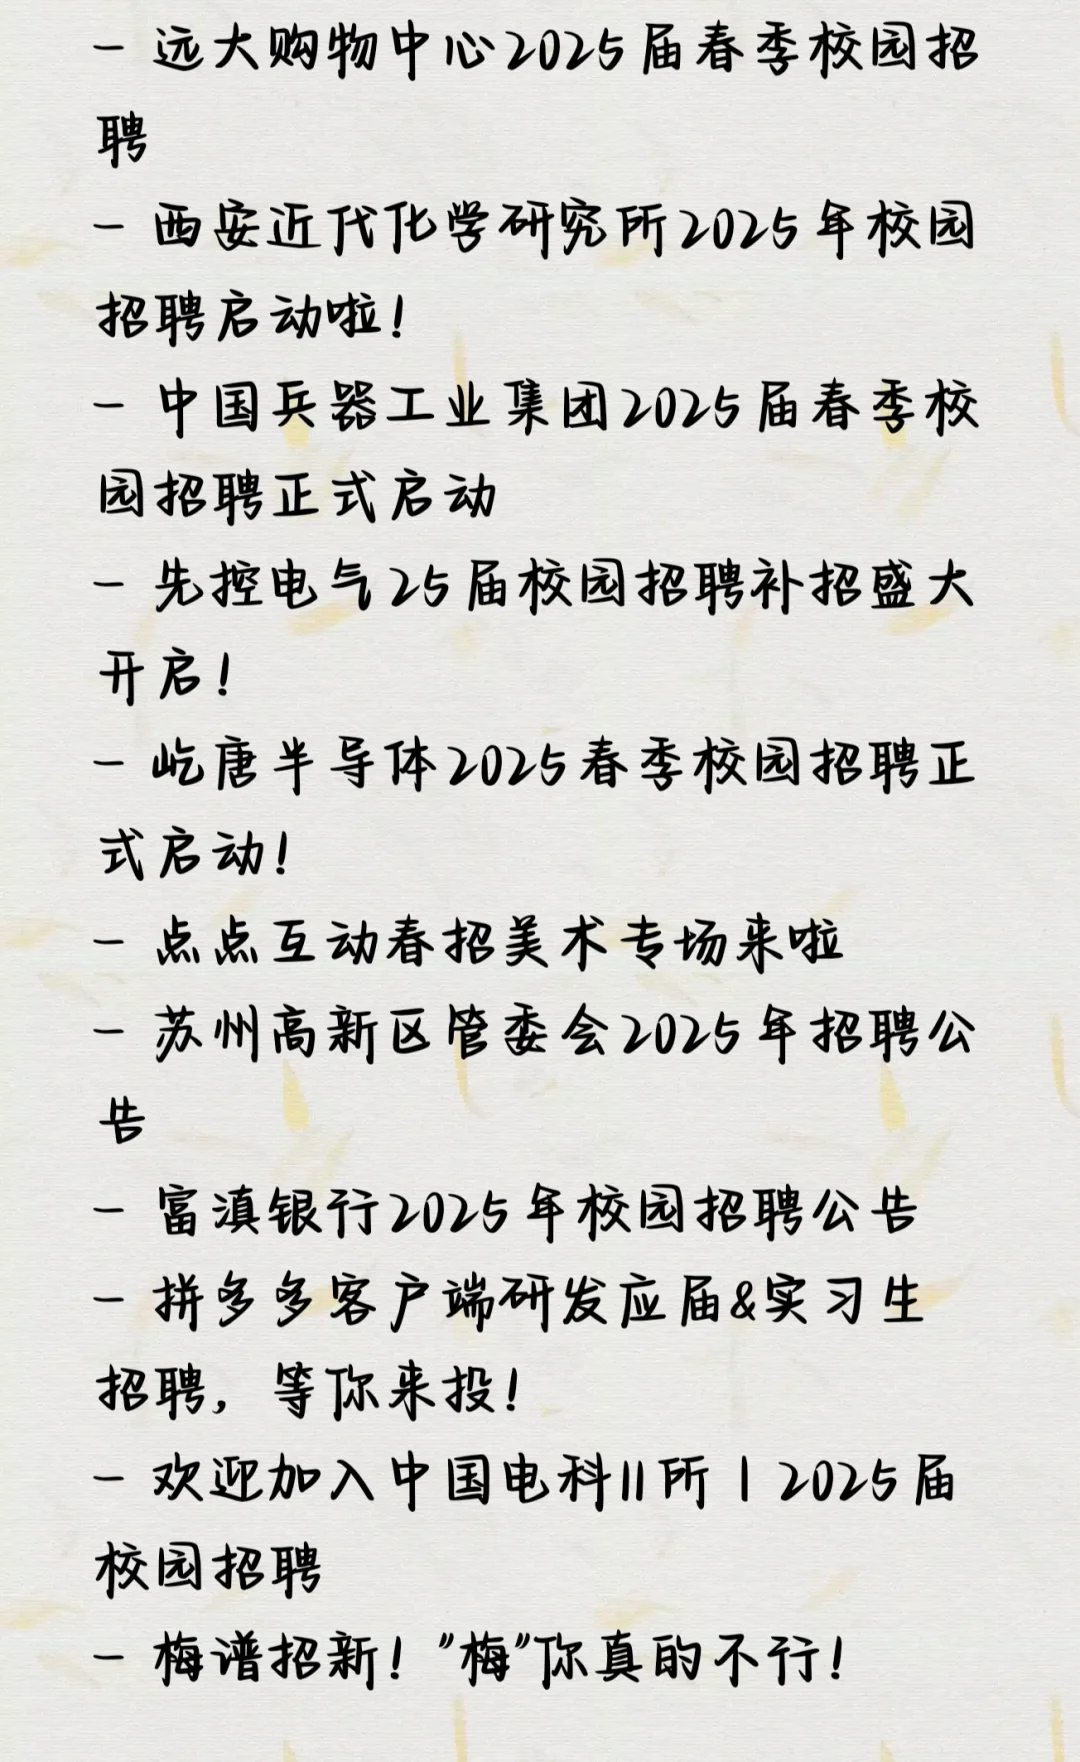 - 远大购物中心2025届春季校园招
聘
- 西安近代化学研究所2025年校园
招聘启动啦！
- 中国兵器工业集团2025届春季校
园招聘正式启动
- 先控电气25届校园招聘补招盛大
开启！
- 屹唐半导体2025春季校园招聘正
式启动！
- 点点互动春招美术专场来啦
- 苏州高新区管委会2025年招聘公
告
- 富滇银行2025年校园招聘公告
- 拼多多客户端研发应届&实习生
招聘，等你来投！
- 欢迎加入中国电科11所丨2025届
校园招聘
- 梅谱招新！"梅"你真的不行！